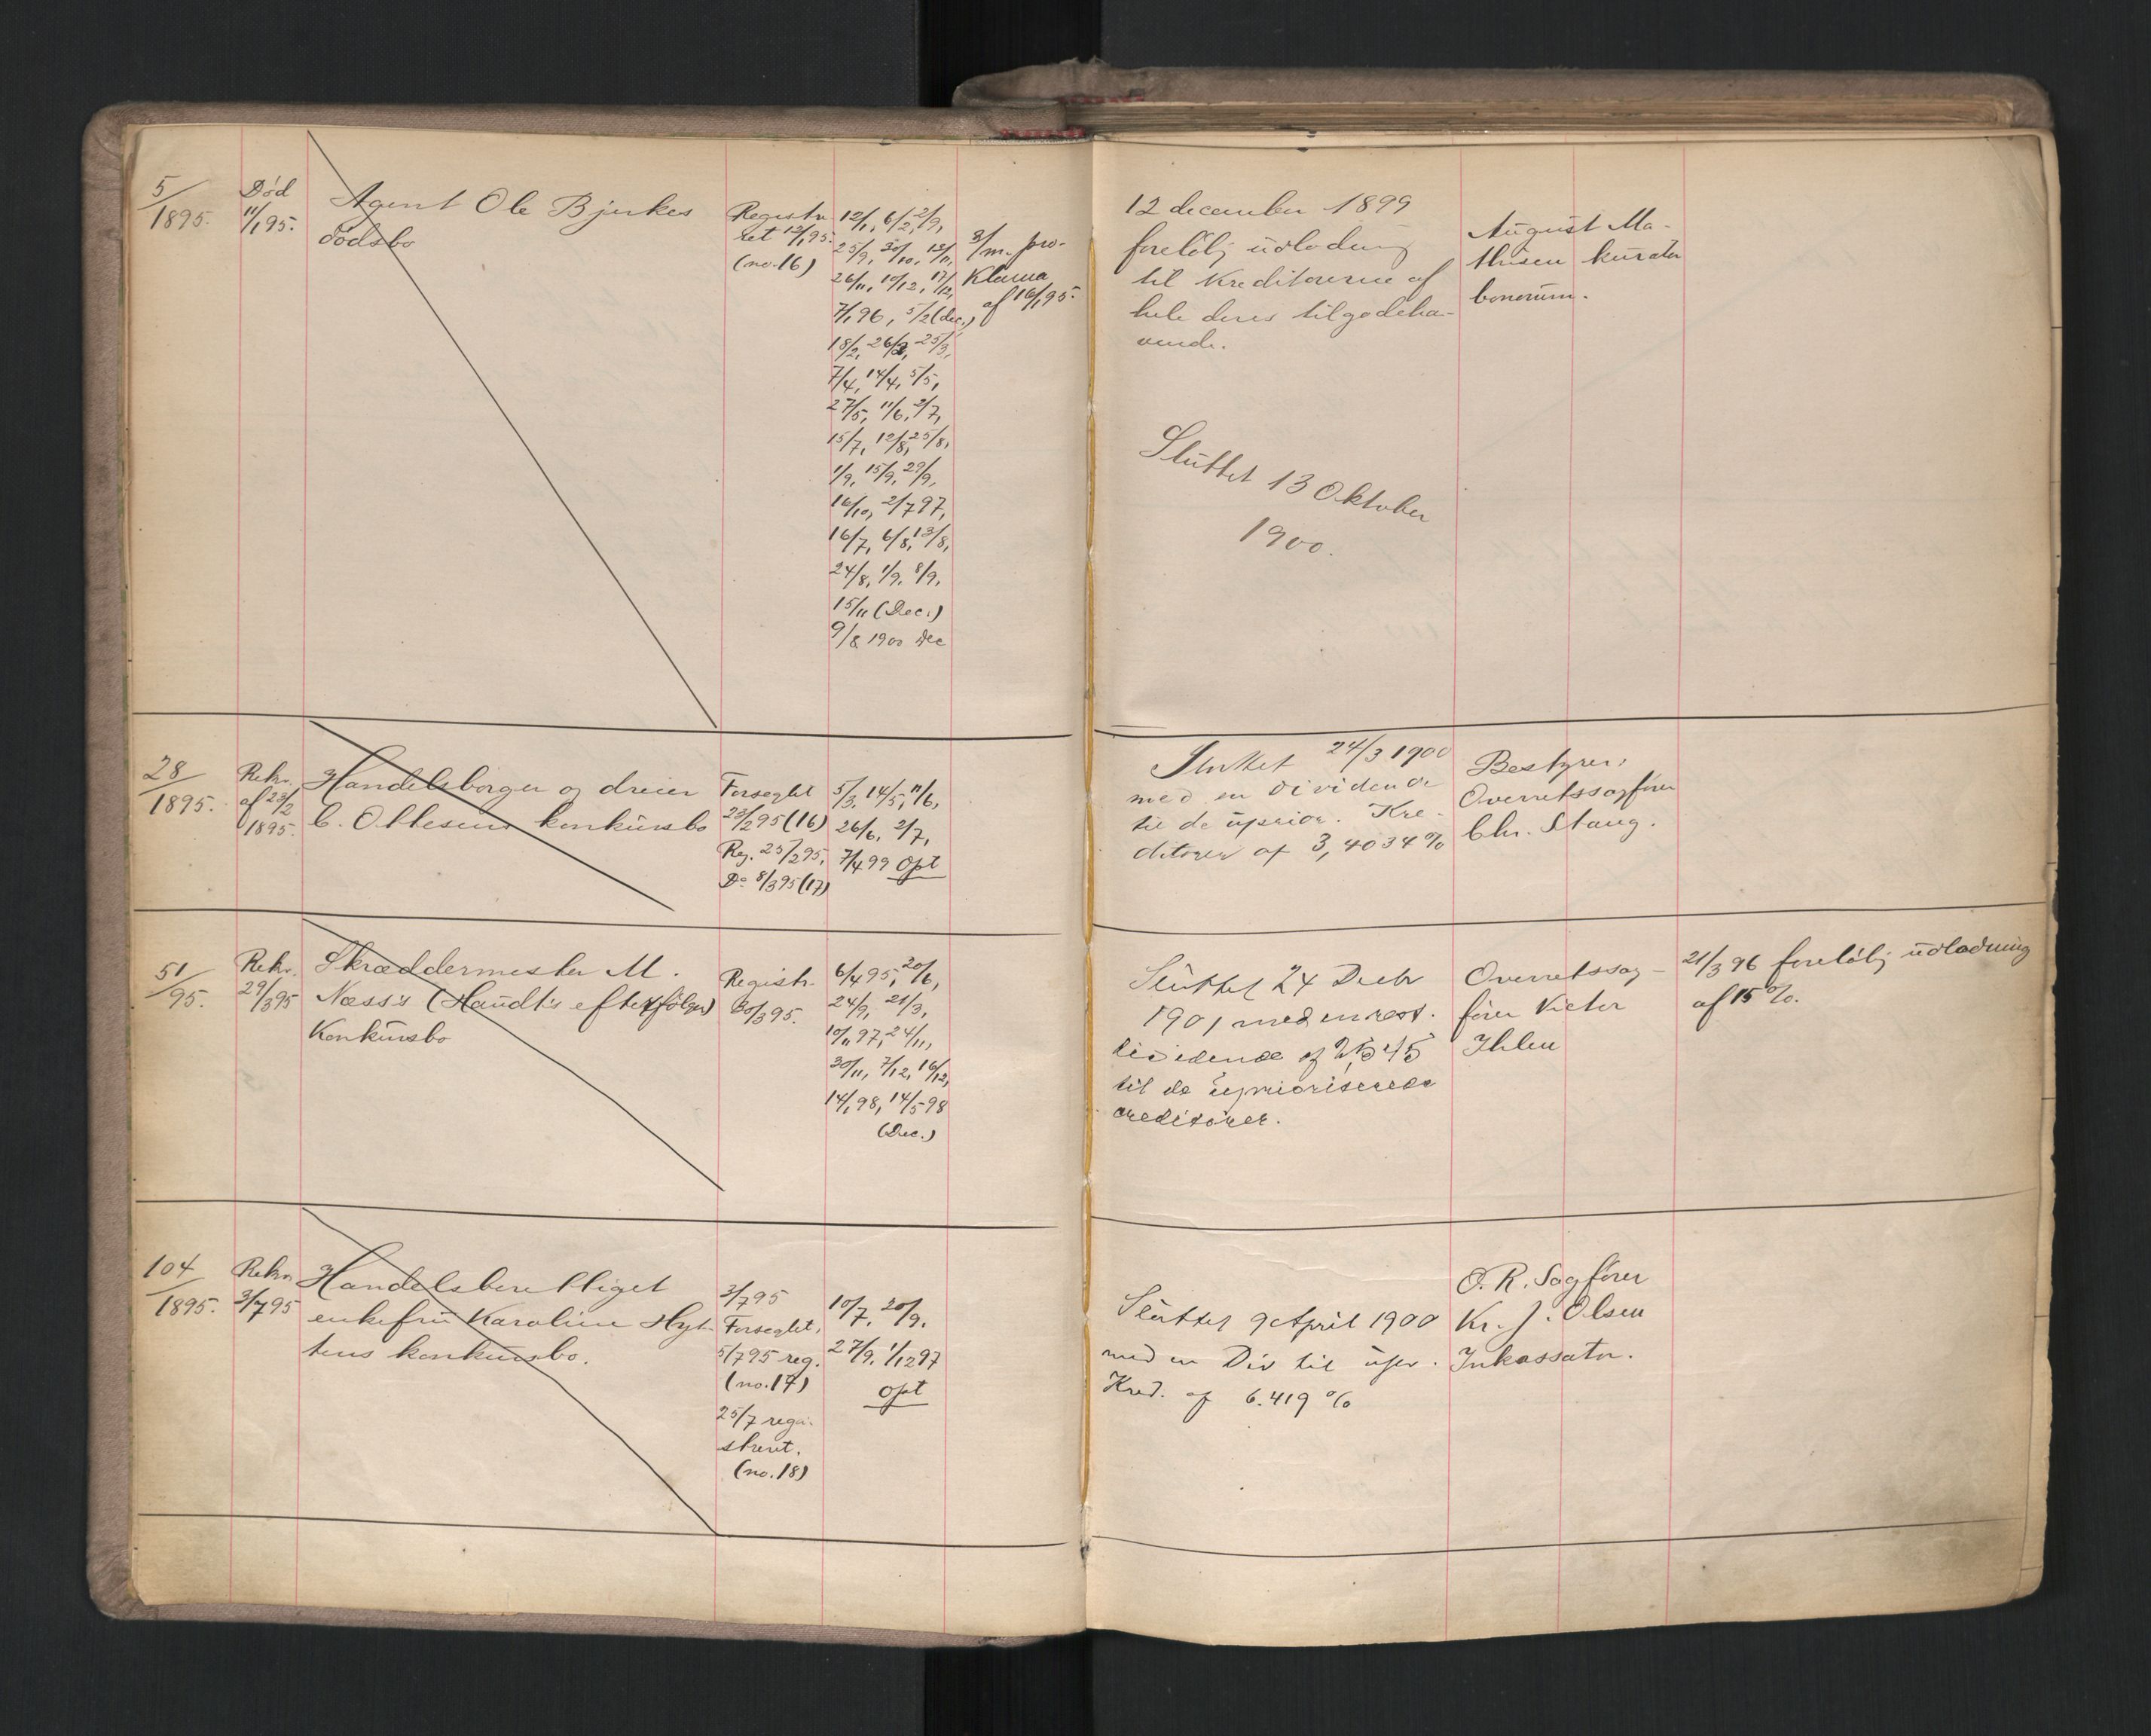 5/1895.
Død
11/1 95.
Agent Ole Bjerkes
dødsbo
Registre-
ret 12/1 95.
(no. 16)
12/1, 6/2, 2/9,
25/9, 30/10, 12/11,
26/11, 10/12, 17/12,
7/1 96, 5/2 (dec.)
18/2, 26/2, 25/3,
7/4, 14/4, 5/5,
27/5, 11/6, 2/7,
15/7, 12/8, 25/8,
1/9, 15/9, 29/9,
16/10, 2/7 97,
16/7, 6/8, 13/8,
24/8, 1/9, 8/9,
15/11 (Dec.)
9/8 1900 Dec
3/m. pro-
klama
af 16/1 95.
12 december 1899
foreløbj udlodning
til kreditorerne af
hele deres tilgodeha-
vende.
Sluttet 13 Oktober
1900.
August Ma-
thisen kurator
bonorum.
28/1895.
Rekv.
af 23/2
1895.
Handelsborger og dreier
C. Ottesens konkursbo
Forseglet
23/2 95 (16)
Reg. 25/2 95,
Do 8/3 95 (17)
5/3, 14/5, 11/6,
26/6, 2/7,
7/4 99 opt
Sluttet 24/3 1900
med en Dividende
til de uprior. Kre-
ditorer af 3,4034 %
Bestyrer,
Overretssagfører
Chr. Stang.
51/95.
Rekv.
29/3 95
Skræddermester M.
Næss's (Haudt's efterfølger)
Konkursbo
Registr.
30/3 95.
6/4 95, 20/6,
24/9, 21/3,
10/11 97, 24/11,
30/11, 7/12, 16/12,
14/1 98, 14/5 98
(Dec.)
Sluttet 24 Decbr
1901 med en rest.
dividende af
til de uprioriserede
creditorer.
Overretssag-
fører Victor
Ihlen
21/3 96 foreløbj udlodning
af 15 %.
104/1895.
Rekv.
3/7 95
Handelsberettiget
enkefru Karoline Hyt-
tens konkursbo.
3/7 95
Forseglet,
5/7 95 reg.
(no. 17)
25/7 regi-
streret.
(no. 18)
10/7, 20/9,
27/9, 1/12 97
opt
Sluttet 9 April 1900
med en Div til upr.
Kred. af 6.419 %
O. R. Sagfører
Kr. J. Olsen
Inkassator.